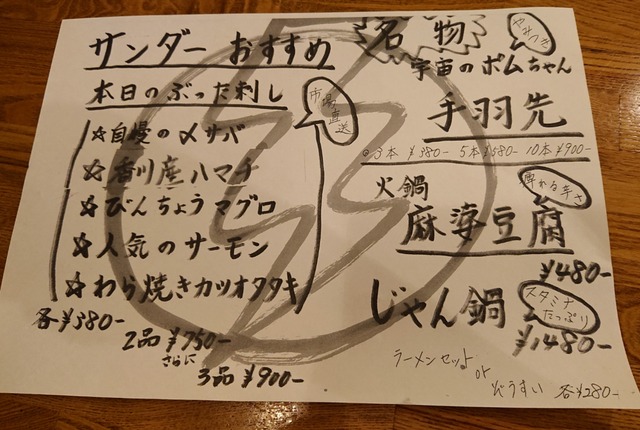 サンダー おすすめ
本日のぶった刺し
市場直送
☆自慢の〆サバ
☆香川産ハマチ
☆びんちょうマグロ
☆人気のサーモン
☆わら焼きカツオタタキ
各¥380-
2品 ¥750-
さらに
3品 ¥900-
名物
やみつき
宇宙のボムちゃん
手羽先
3本 ¥380- 5本 ¥580- 10本 ¥900-
火鍋
痺れる辛さ
麻婆豆腐
¥480-
じゃん鍋
スタミナ
たっぷり
¥1480-
ラーメンセット
or
ぞうすい 各¥280-